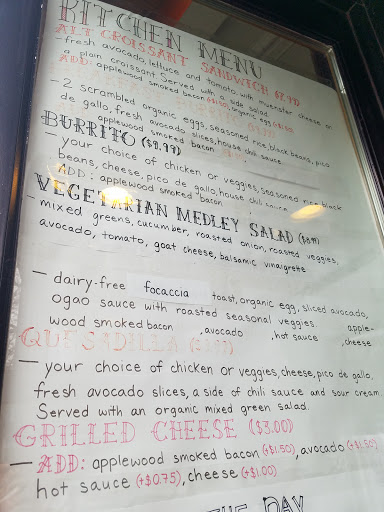 KITCHEN MENU
ALT CROISSANT SANDWICH ($7.99)
- fresh avocado, lettuce and tomato, with muenster cheese on
a plain croissant. Served with a side salad.
ADD: applewood smoked bacon (+$1.50), organic egg (+$1.50)
- 2 scrambled organic eggs, seasoned rice, black beans, pico
de gallo, fresh avocado slices, house chili sauce.
applewood smoked bacon
BURRITO ($9.99)
- your choice of chicken or veggies, seasoned rice, black
beans, cheese, pico de gallo, house chili sauce
ADD: applewood smoked bacon
VEGETARIAN MEDLEY SALAD
- mixed greens, cucumber, roasted onion, roasted veggies,
avocado, tomato, goat cheese, balsamic vinaigrette
- dairy-free focaccia toast, organic egg, sliced avocado,
ogao sauce with roasted seasonal veggies. apple-
wood smoked bacon ,avocado ,hot sauce ,cheese
QUESADILLA
- your choice of chicken or veggies, cheese, pico de gallo,
fresh avocado slices, a side of chili sauce and sour cream.
Served with an organic mixed green salad.
GRILLED CHEESE ($3.00)
- ADD: applewood smoked bacon (+$1.50), avocado (+$1.50)
hot sauce (+$0.75), cheese (+$1.00)
THE DAY